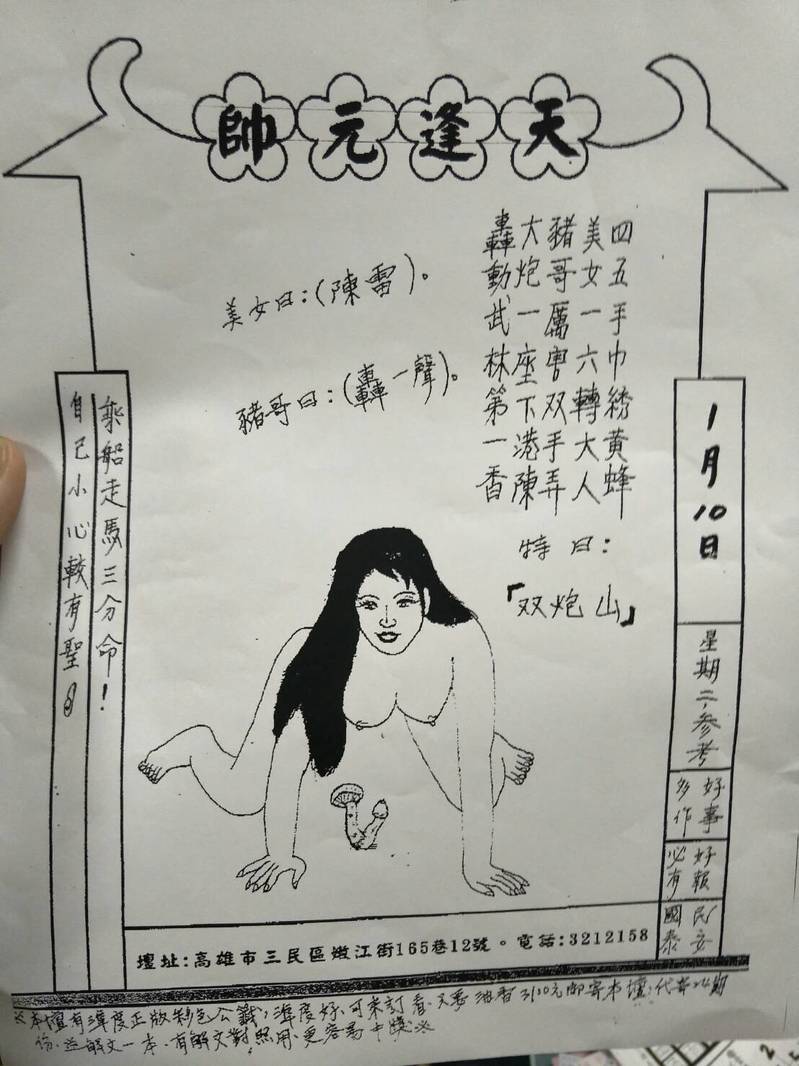 天逢元帥
四五手巾綉黃蜂
美女一六轉大人
豬哥厲害双手弄
大炮一座下港陳
轟動武林第一香
特曰：
「双炮山」
美女曰：(陳雷)。
豬哥曰：(轟一聲)。
1月10日
星期二，参考
好事多作
好報必有
民安國泰
乘船走馬三分命！
自己小心較有聖。
壇址：高雄市三民區嫩江街165巷12號。電話：3212158
※本壇有準度正版彩色公籤，準度好、可來訂看、油香310元郵寄本壇，代寄24期
份、並解文一本、有解文對照用、更容易中獎※